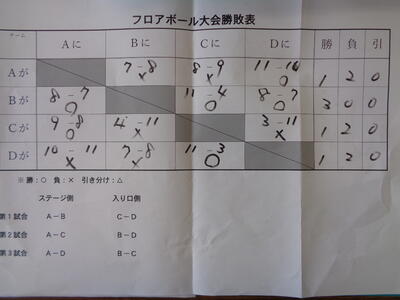 フロアボール大会勝敗表
チーム Aに Bに Cに Dに 勝 負 引
Aが 7-8 × 8-9 × 11-10 ○ 1 2 0
Bが 8-7 ○ 11-4 ○ 8-7 ○ 3 0 0
Cが 9-8 ○ 4-11 × 3-11 × 1 2 0
Dが 10-11 × 7-8 × 11-3 ○ 1 2 0
※勝:○ 負:× 引き分け:△
ステージ側 入り口側
第1試合 A-B C-D
第2試合 A-C B-D
第3試合 A-D B-C